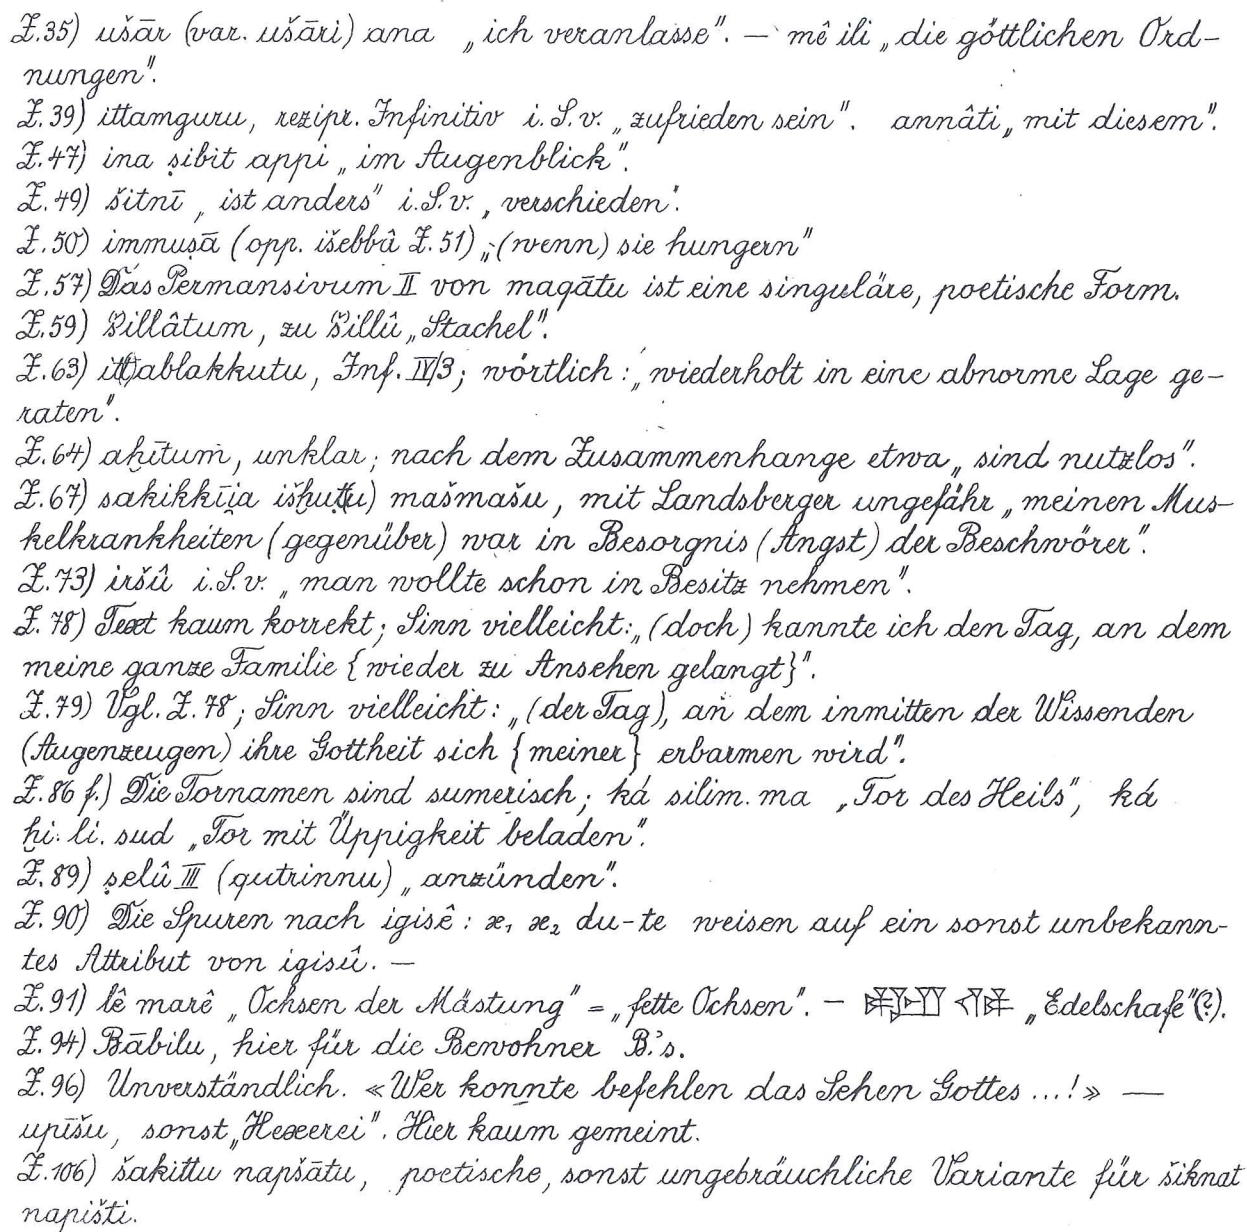 Z.35) ušār (var. ušāri) ana „ich veranlasse". — mê ili „die göttlichen Ord-
nungen".
Z.39) ittamguru, rezipr. Infinitiv i.S.v. „zufrieden sein". annâti „mit diesem".
Z.47) ina ṣibit appi „im Augenblick".
Z.49) šitnī „ist anders" i.S.v. „verschieden".
Z.50) immuṣā (opp. išebbâ Z.51) „(wenn) sie hungern"
Z.57) Das Permansivum II von maqātu ist eine singuläre, poetische Form.
Z.59) Ṣillâtum, zu Ṣillû „Stachel".
Z.63) it(t)ablakkutu, Inf. IV/3; wörtlich: „wiederholt in eine abnorme Lage ge-
raten".
Z.64) aḫītum, unklar; nach dem Zusammenhange etwa „sind nutzlos".
Z.67) sakikkīi̯a išḫuṭ(u) mašmašu, mit Landsberger ungefähr „meinen Mus-
kelkrankheiten (gegenüber) war in Besorgnis (Angst) der Beschwörer".
Z.73) iršû i.S.v. „man wollte schon in Besitz nehmen".
Z.78) Text kaum korrekt; Sinn vielleicht: „(doch) kannte ich den Tag, an dem
meine ganze Familie {wieder zu Ansehen gelangt}".
Z.79) Vgl. Z.78; Sinn vielleicht: „(der Tag), an dem inmitten der Wissenden
(Augenzeugen) ihre Gottheit sich {meiner} erbarmen wird".
Z.86 f.) Die Tornamen sind sumerisch; ká silim.ma „Tor des Heils", ká
ḫi.li.sud „Tor mit Üppigkeit beladen".
Z.89) ṣelû III (qutrinnu) „anzünden".
Z.90) Die Spuren nach igisê: x₁ x₂ du-te weisen auf ein sonst unbekann-
tes Attribut von igisû. —
Z.91) lê marê „Ochsen der Mästung" = „fette Ochsen". — „Edelschafe"(?).
Z.94) Bābilu, hier für die Bewohner B.'s.
Z.96) Unverständlich. «Wer konnte befehlen das Sehen Gottes ...!» —
upīšu, sonst „Hexerei". Hier kaum gemeint.
Z.106) šakittu napšātu, poetische, sonst ungebräuchliche Variante für šiknat
napišti.